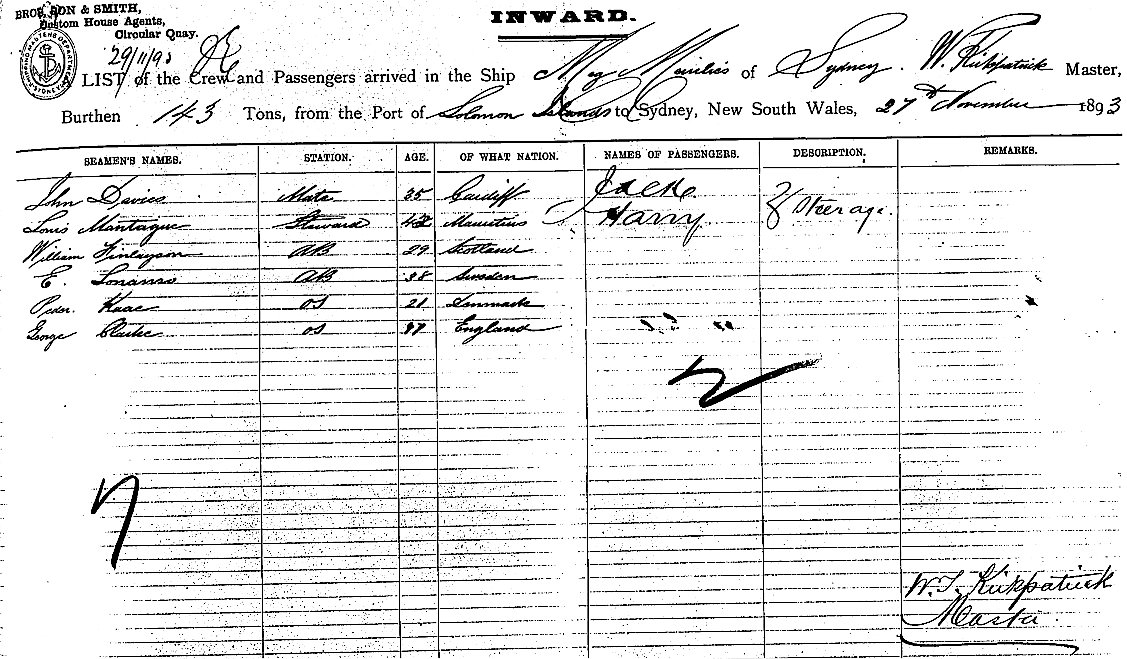 BRO SON & SMITH,
Custom House Agents,
Circular Quay.
INWARD.
29/11/93
LIST of the Crew and Passengers arrived in the Ship of Sydney. W. Kirkpatrick Master,
Burthen 143 Tons, from the Port of Solomon Islands to Sydney, New South Wales, 27th November 1893
SEAMEN'S NAMES. STATION. AGE. OF WHAT NATION. NAMES OF PASSENGERS. DESCRIPTION. REMARKS.
John Davies Mate 35 Cardiff Jack
Louis Montague Steward 42 Mauritius Harry } Steerage.
William Finlayson AB 29 Scotland
E. AB 38 Sweden
Peder OS 21 Denmark
George Clarke OS England
7
2
W. J. Kirkpatrick
Master